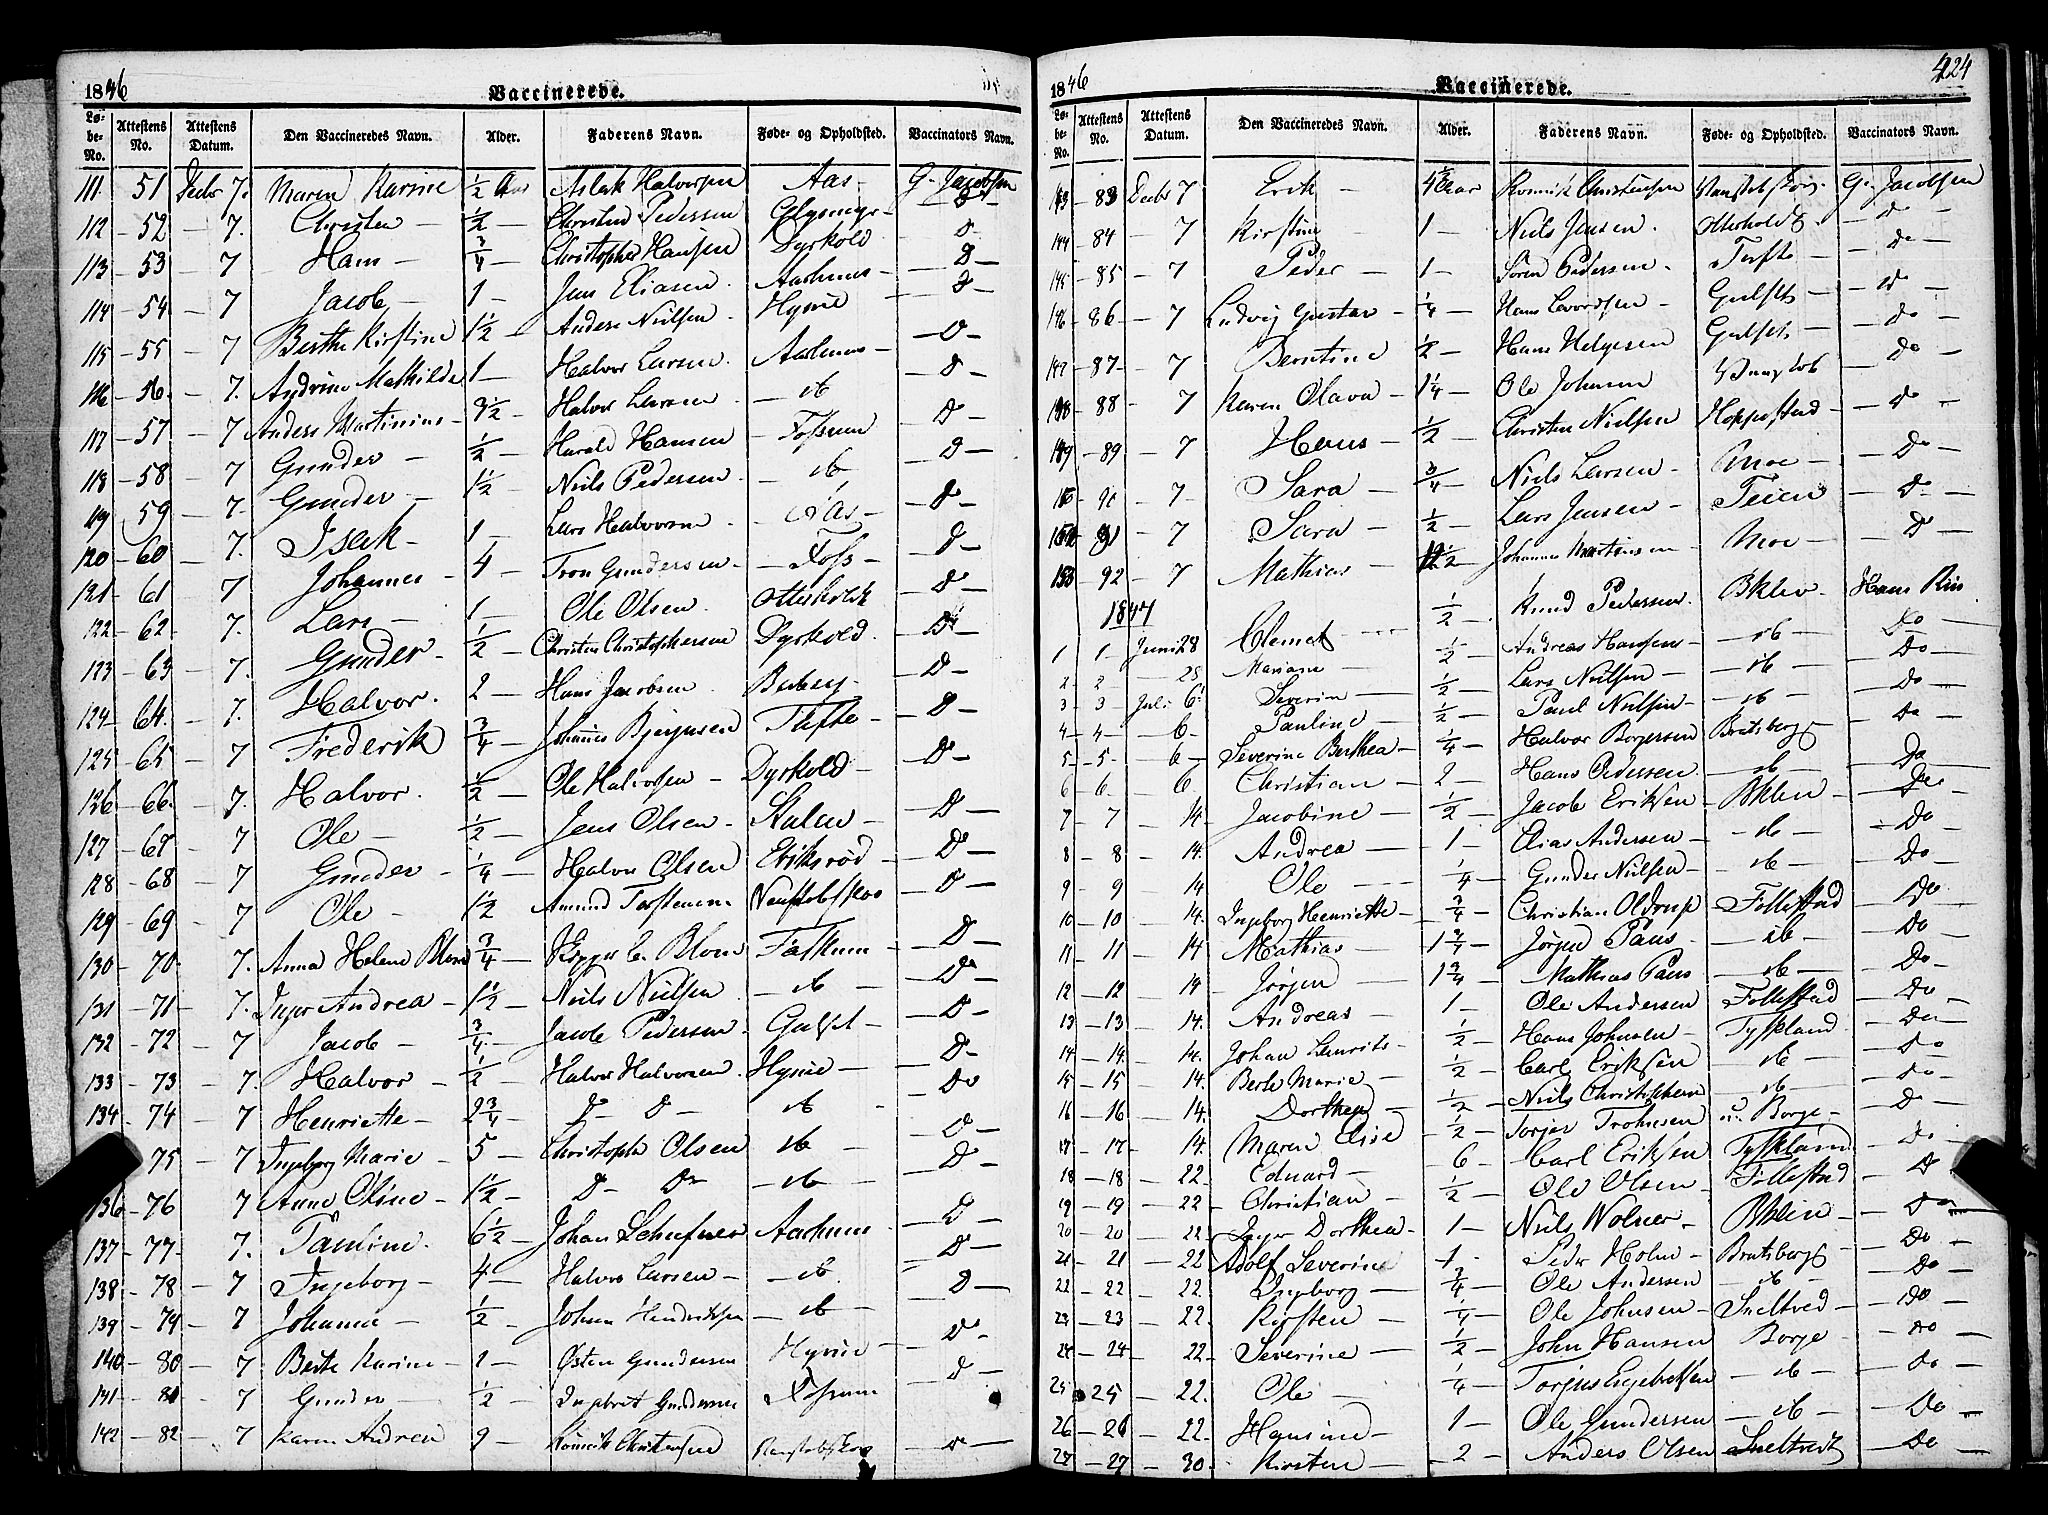 1846 Vaccinerede.
Løbe-No. Attestens No. Attestens Datum. Den Vaccineredes Navn. Alder. Faderens Navn. Føde- og Opholdsted. Vaccinators Navn.
111 - 51 Decbr 7. Maren Karine ½ Aar Aslak Halvorsen Aas - G. Jacobsen
112 - 52 - 7. Christen - ½ - Christen Pedersen - D -
113 - 53 - 7 Hans - ¾ Christopher Hansen Dyrkold - D -
114 - 54 - 7 Jacob - 1 - Jens Eliasen Aarhuus - D -
115 - 55 - 7 Berthe Kirstine 1½ Anders Nielsen Hynie - D -
116 - 56. - 7. Andrine Mathilde 1 - Halvor Larsen Aarhuus - D -
117 - 57 - 7 Anders Martinius - 3½ - Halvor Larsen - ib - D -
118 - 58 - 7 Gunder - ½ - Harald Hansen - Fossum - D -
119 59 - 7. Gunder - 1½ - Niels Pedersen - ib - D -
120 - 60 - 7. Isak - 1 - Lars Halvorsen - Aas - D -
121 - 61 - 7 Johannes - 4 - Tron Gundersen - Foss - D -
122 - 62 - 7. Lars - 1 - Ole Olsen Otterholt - D -
123 - 63 - 7. Gunder - ½ - Christen Christophersen Dyrkold - D -
124 - 64. - 7. Halvor. 2 - Hans Jacobsen Bakken - D -
125 - 65 - 7 Frederik ¾ - Johannes Bjørnsen Tufte - D -
126 - 66. - 7. Halvor. ½ - Ole Halvorsen - Dyrkold - D -
127 - 67 - 7 Ole - ½ - Jens Olsen - Stulen - D -
128 - 68 - 7 Gunder - ¼ - Halvor Olsen Eriksrød - D -
129 - 69 - 7 Ole - 1½ Amund Torstensen Venstøbskov - D -
130 - 70 - 7. Anna Helene Blom ¾ - Jeppe C. Blom - Falkum - D -
131 - 71 - 7. Inger Andrea - 1½ - Niels Nielsen - ib - D -
132 - 72 - 7 Jacob - ¾ - Jacob Pedersen - Gulset - D -
133 - 73 - 7. Halvor - ½ - Halvor Halvorsen. Hynie - D -
134 - 74 - 7 Henriette - 2¾ - D - D - ib - Do
75 - 7 Ingeborg Marie - 5 - Christoph Olsen ib - D -
136 - 76 - 7 Anne Oline - 1½ - D - Do - ib - D -
137 - 77 - 7. Pauline. 6½ - Johan Schefner Aarhuus - D -
138 - 78 - 7 Ingeborg - 4 - Halvor Larsen - ib - D -
139 - 79 - 7 Johanne - ½ - Johan Hendriksen - ib - D -
140 - 80 - 7 Berthe Karine - 1 - Østen Gundersen Hynie - D -
141 - 81 - 7 Gunder - ½ - Ingebret Gundersen Fossum - D -
142 - 82 - 7 Karen Andrea 9 - Christensen Venstøbskov - D -
1846 Vaccinerede. 424
Løbe-No. Attestens No. Attestens Datum. Den Vaccineredes Navn. Alder. Faderens Navn. Føde- og Opholdsted. Vaccinators Navn.
143 - 83 Decbr 7 Erik - Aar Christensen Venstøbskov. G. Jacobsen
144 - 84 - 7 Kirstine 1 - Niels Jensen. Otterholdt - Do -
145 - 85 - 7 Peder - 1 - Søren Pedersen - Tufte - Do -
146 - 86 - 7 Ludvig Gustav - ¼ - Hans Evordsen - Gulset - Do -
147 - 87 - 7 Berntine ½ - Hans Helgesen Gulset - Do -
148 - 88 - 7 Karen Olava - 1¼ - Ole Johnsen Venstøb - Do -
149 - 89 - 7 Hans - ½ - Christen Nielsen Hoppestad - Do -
150 - 90 - 7 Sara - ¾ - Niels Larsen - Moe - Do -
- 91 - 7 Sara - ½ - Lars Jensen - Teien - Do -
153 - 92 - 7 Mathias - Johannes Martinsen - Moe - D -
1847
1 1 - Juni 28 Clemet - ½ - Knud Pedersen. Bklev - Hans Riis
2 - 2 - 28 Mariane - ½ - Andreas Hansen - ib - Do -
3 - 3 - Juli 6 Severin - ½ - Lars Nielsen - ib - Do -
4 - 4 - 6 - Pauline - ½ - Paul Nielsen - ib - Do
5 - 5 - 6 - Severine Berthea - ¼ - Halvor Borgersen Bratsberg - Do
6 - 6 - 6 Christian - 2 - Hans Pedersen - ib - Do -
7 - 7 - 14. Jacobine - ½ - Jacob Eriksen - Bklev - Do
8 - 8 - 14. Andrea - 1 - Elias Andersen - ib - Do
9 - 9 - 14 Ole - ¼ - Gunder Nielsen - ib - Do
10 - 10 - 14. Ingeborg Henriette - ¾ - Christian Oldrup Follestad - Do
11 - 11 - 14 Mathias - 1¾ - Jørgen Paus - ib - Do
12 - 12 - 14 Jørgen - 1¾ - Mathias Paus - ib - Do -
13 - 13 - 14. Andreas - 1 - Ole Andersen Follestad - Do
14 - 14 - 14. Johan - ½ - Hans Johnsen - Tyskland - Do
15 - 15 - 14. Berthe Marie - ½ - Carl Eriksen - ib - Do
16 - 16 - 14. Dorthea - ½ - Niels Christophersen - ib - Do -
17 - 17 - 14. Maren Elise - ½ - Torjer Trohnsen u. Borge - Do -
18 - 18 - 22. Eduard - 6 - Carl Eriksen Tyskland - Do
19 - 19 - 22 - Christian - ½ - Ole Olsen - Follestad - D
20 - 20 - 22 Inger Dorthea - 1 - Niels Wolner - Bklev - Do
21 - 21 - 22 Adolf Severine - 1 - Peder Holm - Bratsberg - Do -
22 - 22 - 22. Ingeborg - ¾ - Ole Andersen - ib - Do -
23 - 23 - 22. Kirsten - ¼ - Ole Johnsen - Sneltved - Do
24 - 24 - 22. Severine - ½ - John Hansen Borge - Do -
25 25 - 22. Ole - ¼ - Torjus Engebretsen - ib - Do
26 - 26 - 22. Hansine - 1 - Ole Gundersen - ib - Do -
27 - 27 - 30. Kirsten - 2 - Anders Olsen Sneltvedt - Do